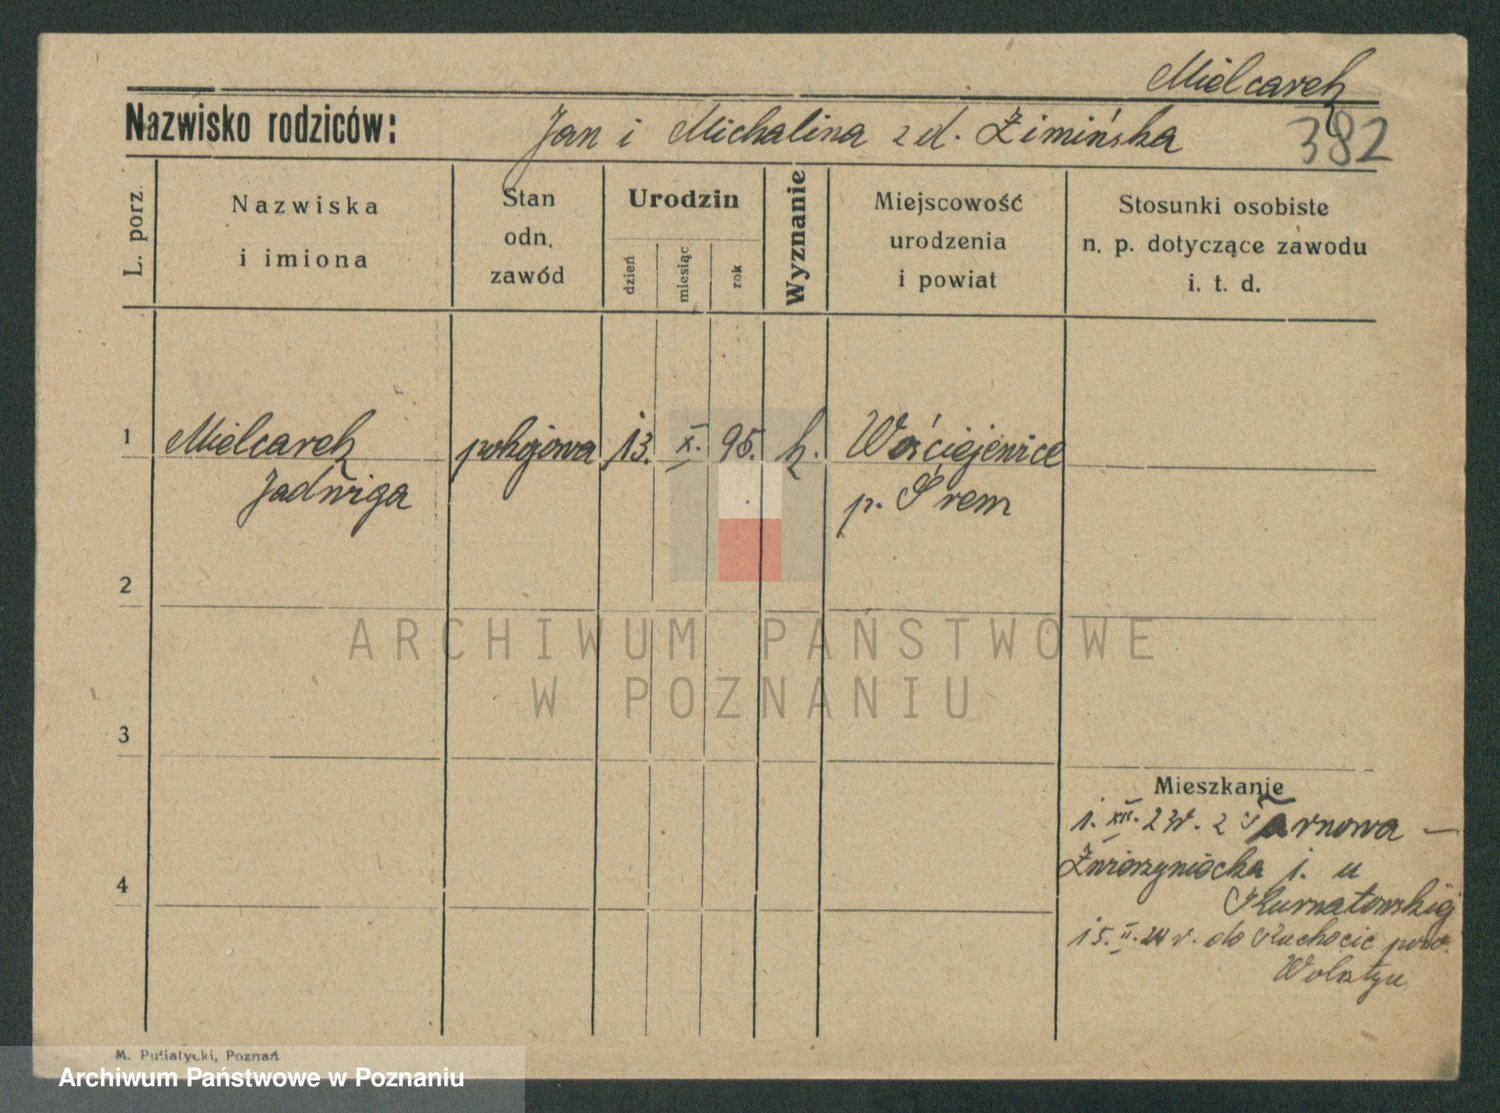 Mielcarek
Nazwisko rodziców: Jan i Michalina z d. Zimińska 382
L. porz.
Nazwiska
i imiona
Stan
odn.
zawód
Urodzin
dzień
miesiąc
rok
Wyznanie
Miejscowość
urodzenia
i powiat
Stosunki osobiste
n. p. dotyczące zawodu
i. t. d.
1 Mielcarek pokojowa 13. X. 95. k. Wościejewice
Jadwiga p. Śrem
2
ARCHIWUM PAŃSTWOWE
W POZNANIU
3
Mieszkanie
1. XII. 23r. z Tarnowa –
Zwierzyniecka 1. u
Kurnatowskiej
15. II. 24 r. do Kuchocic pow.
4
M. Putiatycki, Poznań
Archiwum Państwowe w Poznaniu